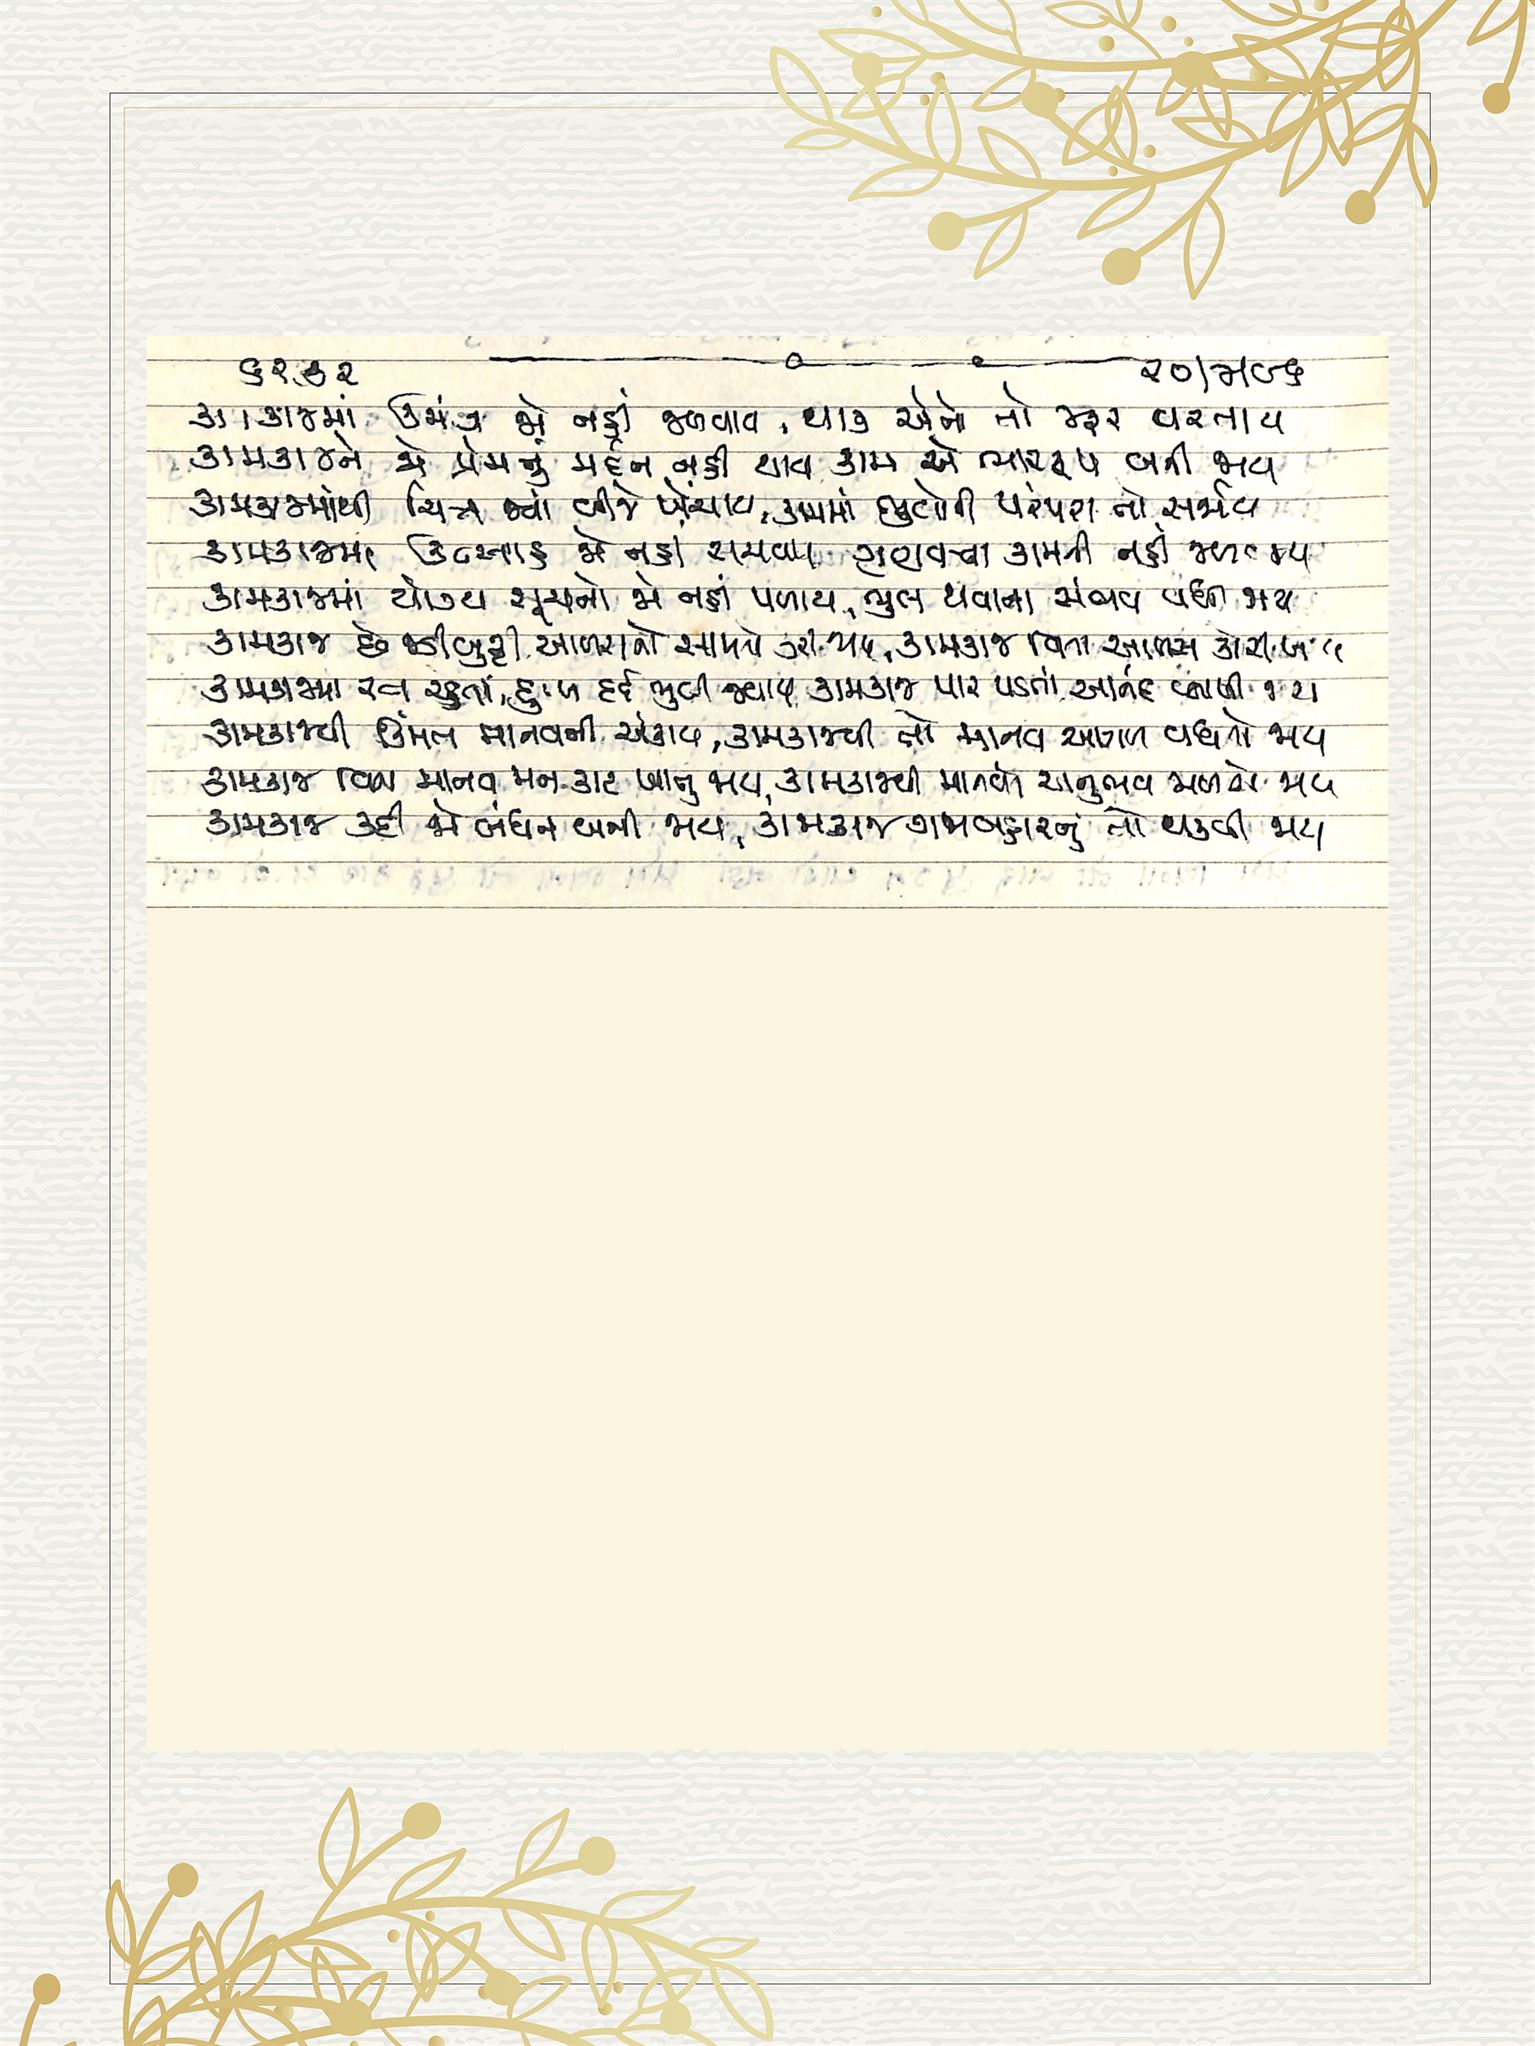 ૨૦/
કામકાજમાં ઉમંગ જો નહીં જળવાય, થાક એનો તો જરૂર વરતાય
કામકાજને જો પ્રેમનું મર્દન નહીં થાય કામ એ ભારરૂપ બની જાય
કામકાજમાંથી ચિત્ત જ્યાં બીજે ખેંચાય, કામમાં ભુલોની પરંપરા તો સર્જાય
કામકાજમાં ઉત્સાહ જો નહીં સચવાય ગુણવત્તા કામની નહીં જળવાય
કામકાજમાં યોગ્ય સૂચનો જો નહીં પળાય, ભુલ થવાના સંભવ વધી જાય
કામકાજ છે જડીબુટ્ટી આળસનો સામનો કરી જાય, કામકાજ વિના આળસ કોરી ખાય
કામકાજમાં રત રહેતાં, દુઃખ દર્દ ભુલી જવાય કામકાજ પાર પડતાં આનંદ વ્યાપી જાય
કામકાજથી કિંમત માનવની અંકાય, કામકાજથી તો માનવ આગળ વધતો જાય
કામકાજ વિના માનવ મન કાટ ખાતું જાય, કામકાજથી માનવને અનુભવ મળતો જાય
કામકાજ કદી જો બંધન બની જાય, કામકાજ ગજાબહારનું તો થકવી જાય